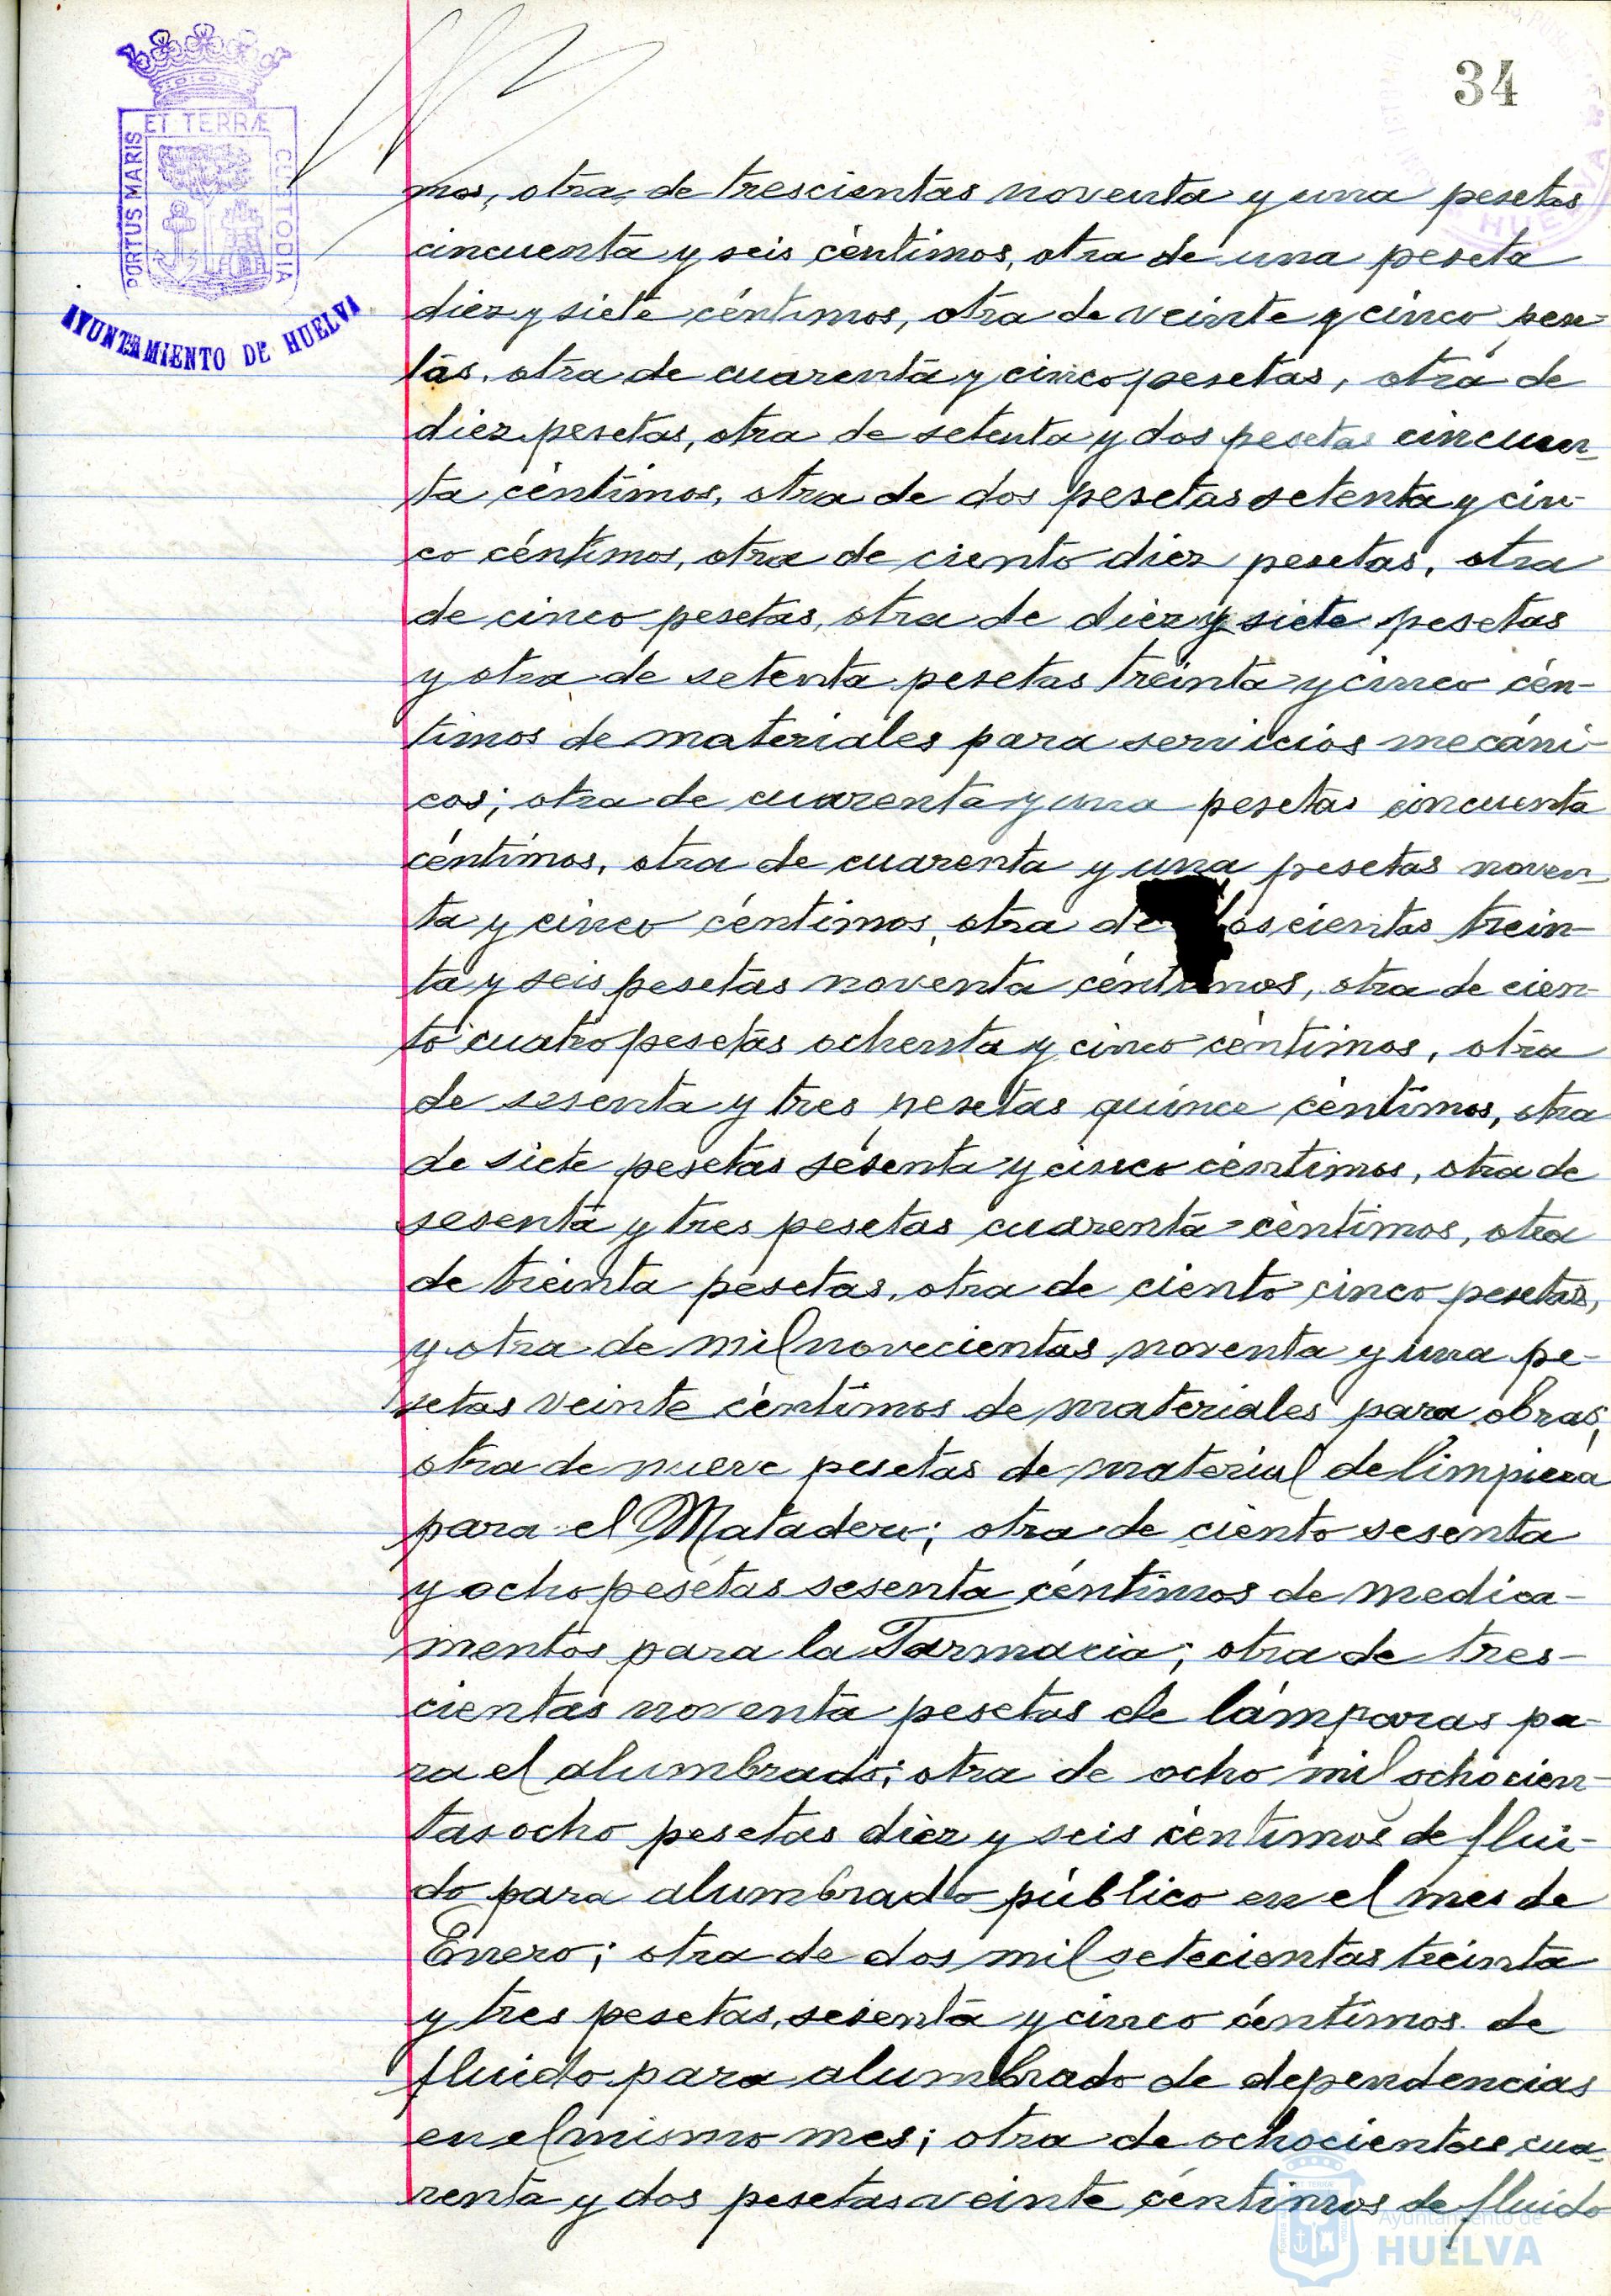 34
ET TERRÆ
PORTUS MARIS
CUSTODIA
AYUNTAMIENTO DE HUELVA
HUELVA
mos, otra de trescientas noventa y una pesetas
cincuenta y seis céntimos, otra de una peseta
diez y siete céntimos, otra de veinte y cinco pese-
tas, otra de cuarenta y cinco pesetas, otra de
diez pesetas, otra de setenta y dos pesetas cincuen-
ta céntimos, otra de dos pesetas setenta y cin-
co céntimos, otra de ciento diez pesetas, otra
de cinco pesetas, otra de diez y siete pesetas
y otra de setenta pesetas treinta y cinco cén-
timos de materiales para servicios mecáni-
cos; otra de cuarenta y una pesetas cincuenta
céntimos, otra de cuarenta y una pesetas noven-
ta y cinco céntimos, otra de doscientas trein-
ta y seis pesetas noventa céntimos, otra de cien-
to cuatro pesetas ochenta y cinco céntimos, otra
de sesenta y tres pesetas quince céntimos, otra
de siete pesetas sesenta y cinco céntimos, otra de
sesenta y tres pesetas cuarenta céntimos, otra
de treinta pesetas, otra de ciento cinco pesetas,
y otra de mil novecientas noventa y una pe-
setas veinte céntimos de materiales para obras;
otra de nueve pesetas de material de limpieza
para el Matadero; otra de ciento sesenta
y ocho pesetas sesenta céntimos de medica-
mentos para la Farmacia; otra de tres-
cientas noventa pesetas de lámparas pa-
ra el alumbrado; otra de ocho mil ochocien-
tas ocho pesetas diez y seis céntimos de flui-
do para alumbrado público en el mes de
Enero; otra de dos mil setecientas treinta
y tres pesetas, sesenta y cinco céntimos de
fluido para alumbrado de dependencias
en el mismo mes; otra de ochocientas cua-
renta y dos pesetas veinte céntimos de fluido
Ayuntamiento de
HUELVA